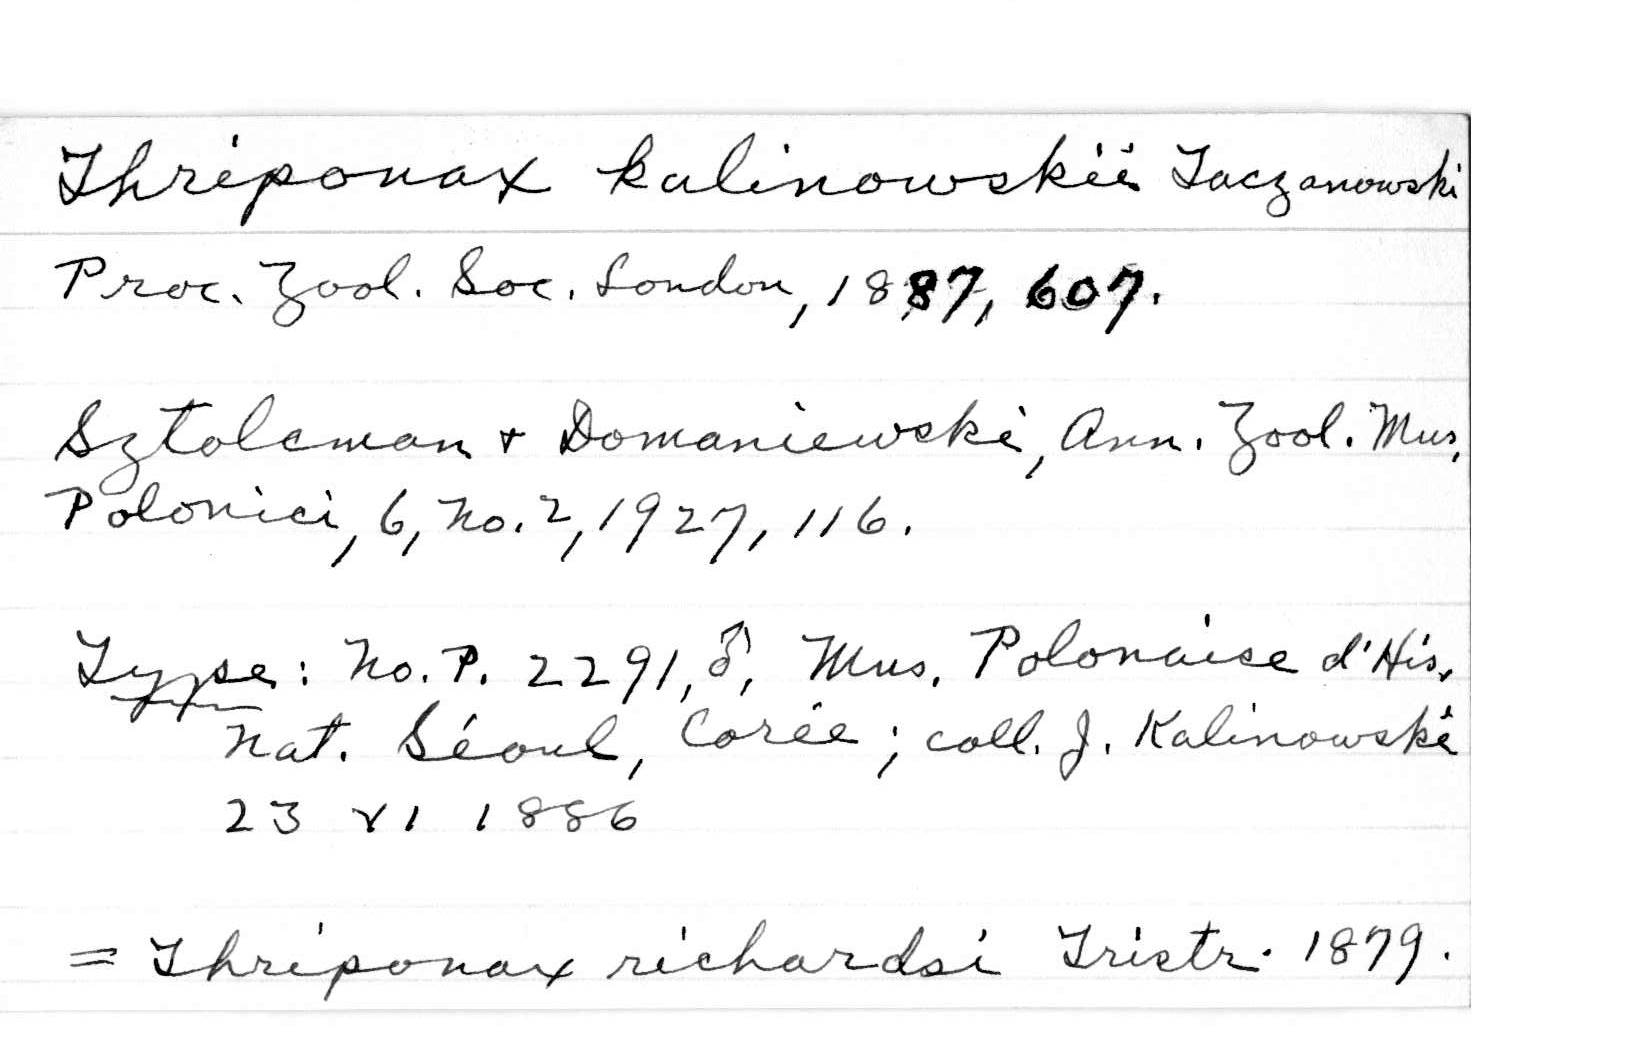 Thriponax kalinowskii Taczanowski
Proc. Zool. Soc. London, 1887, 607.
Sztolcman & Domaniewski, Ann. Zool. Mus.
Polonici, 6, No. 2, 1927, 116.
Type: No. P. 2291, ♂, Mus. Polonaise d'His.
Nat. Séoul, Corée; coll. J. Kalinowski
23 VI 1886
= Thriponax richardsi Tristr. 1879.